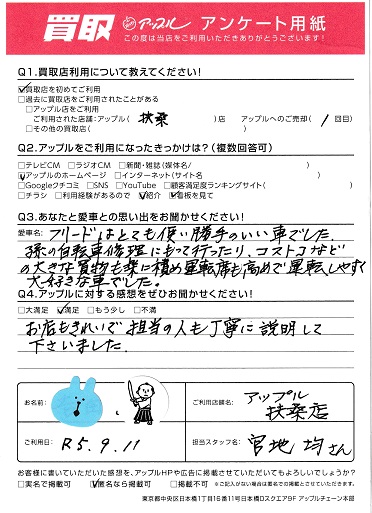 買取 アップル アンケート用紙
この度は当店をご利用いただきありがとうございます！
Q1.買取店利用について教えてください！
☑買取店を初めてご利用
□過去に買取店をご利用されたことがある
□アップル店をご利用
ご利用された店舗：アップル( 扶桑 )店 アップルへのご売却( 1 回目)
□その他の買取店( )
Q2.アップルをご利用になったきっかけは？(複数回答可)
□テレビCM □ラジオCM □新聞・雑誌(媒体名/ )
☑アップルのホームページ □インターネット(サイト名 )
□Googleクチコミ □SNS □YouTube □顧客満足度ランキングサイト( )
□チラシ □利用経験があるので ☑紹介 ☑看板を見て
Q3.あなたと愛車との思い出をお聞かせください！
愛車名: フリードはとても使い勝手のいい車でした。
孫の自転車修理にもって行ったり、コストコなど
の大きな買物も楽に積め運転席も高めで運転しやすく
大好きな車でした。
Q4.アップルに対する感想をぜひお聞かせください！
□大満足 ☑満足 □もう少し □不満
お店もきれいで担当の人も丁寧に説明して
下さいました。
お名前:
ご利用店舗名: アップル
扶桑店
ご利用日: R5.9.11
担当スタッフ名: 宮地 均さん
お客様に書いていただいた感想を、アップルHPや広告に掲載させていただいてもよろしいでしょうか？
□実名で掲載可 ☑匿名なら掲載可 □掲載不可 ※ご記入がない場合は匿名での掲載とさせていただきます。
東京都中央区日本橋1丁目16番11号日本橋Dスクエア9F アップルチェーン本部